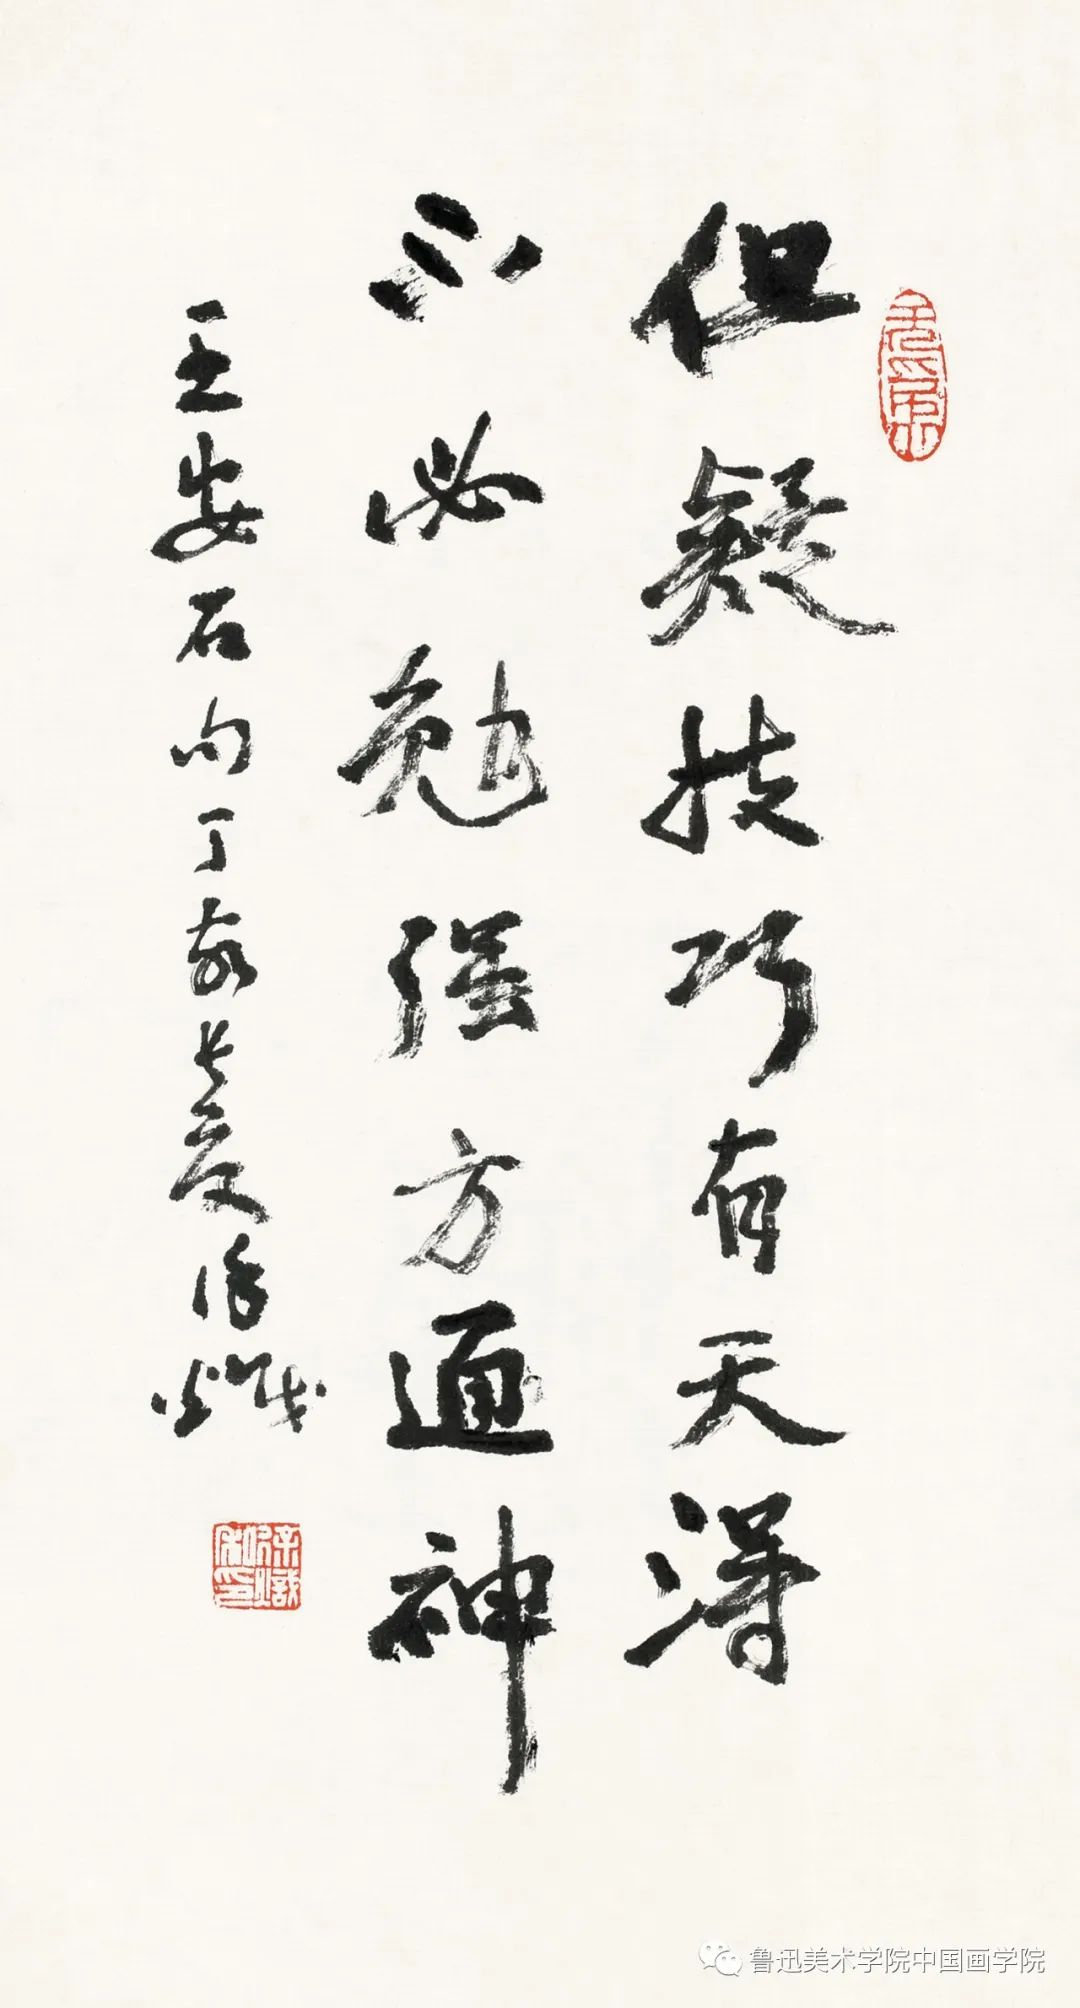 但疑技巧有天得
不必勉强方通神
王安石句丁亥长夏徐炽
鲁迅美术学院中国画学院